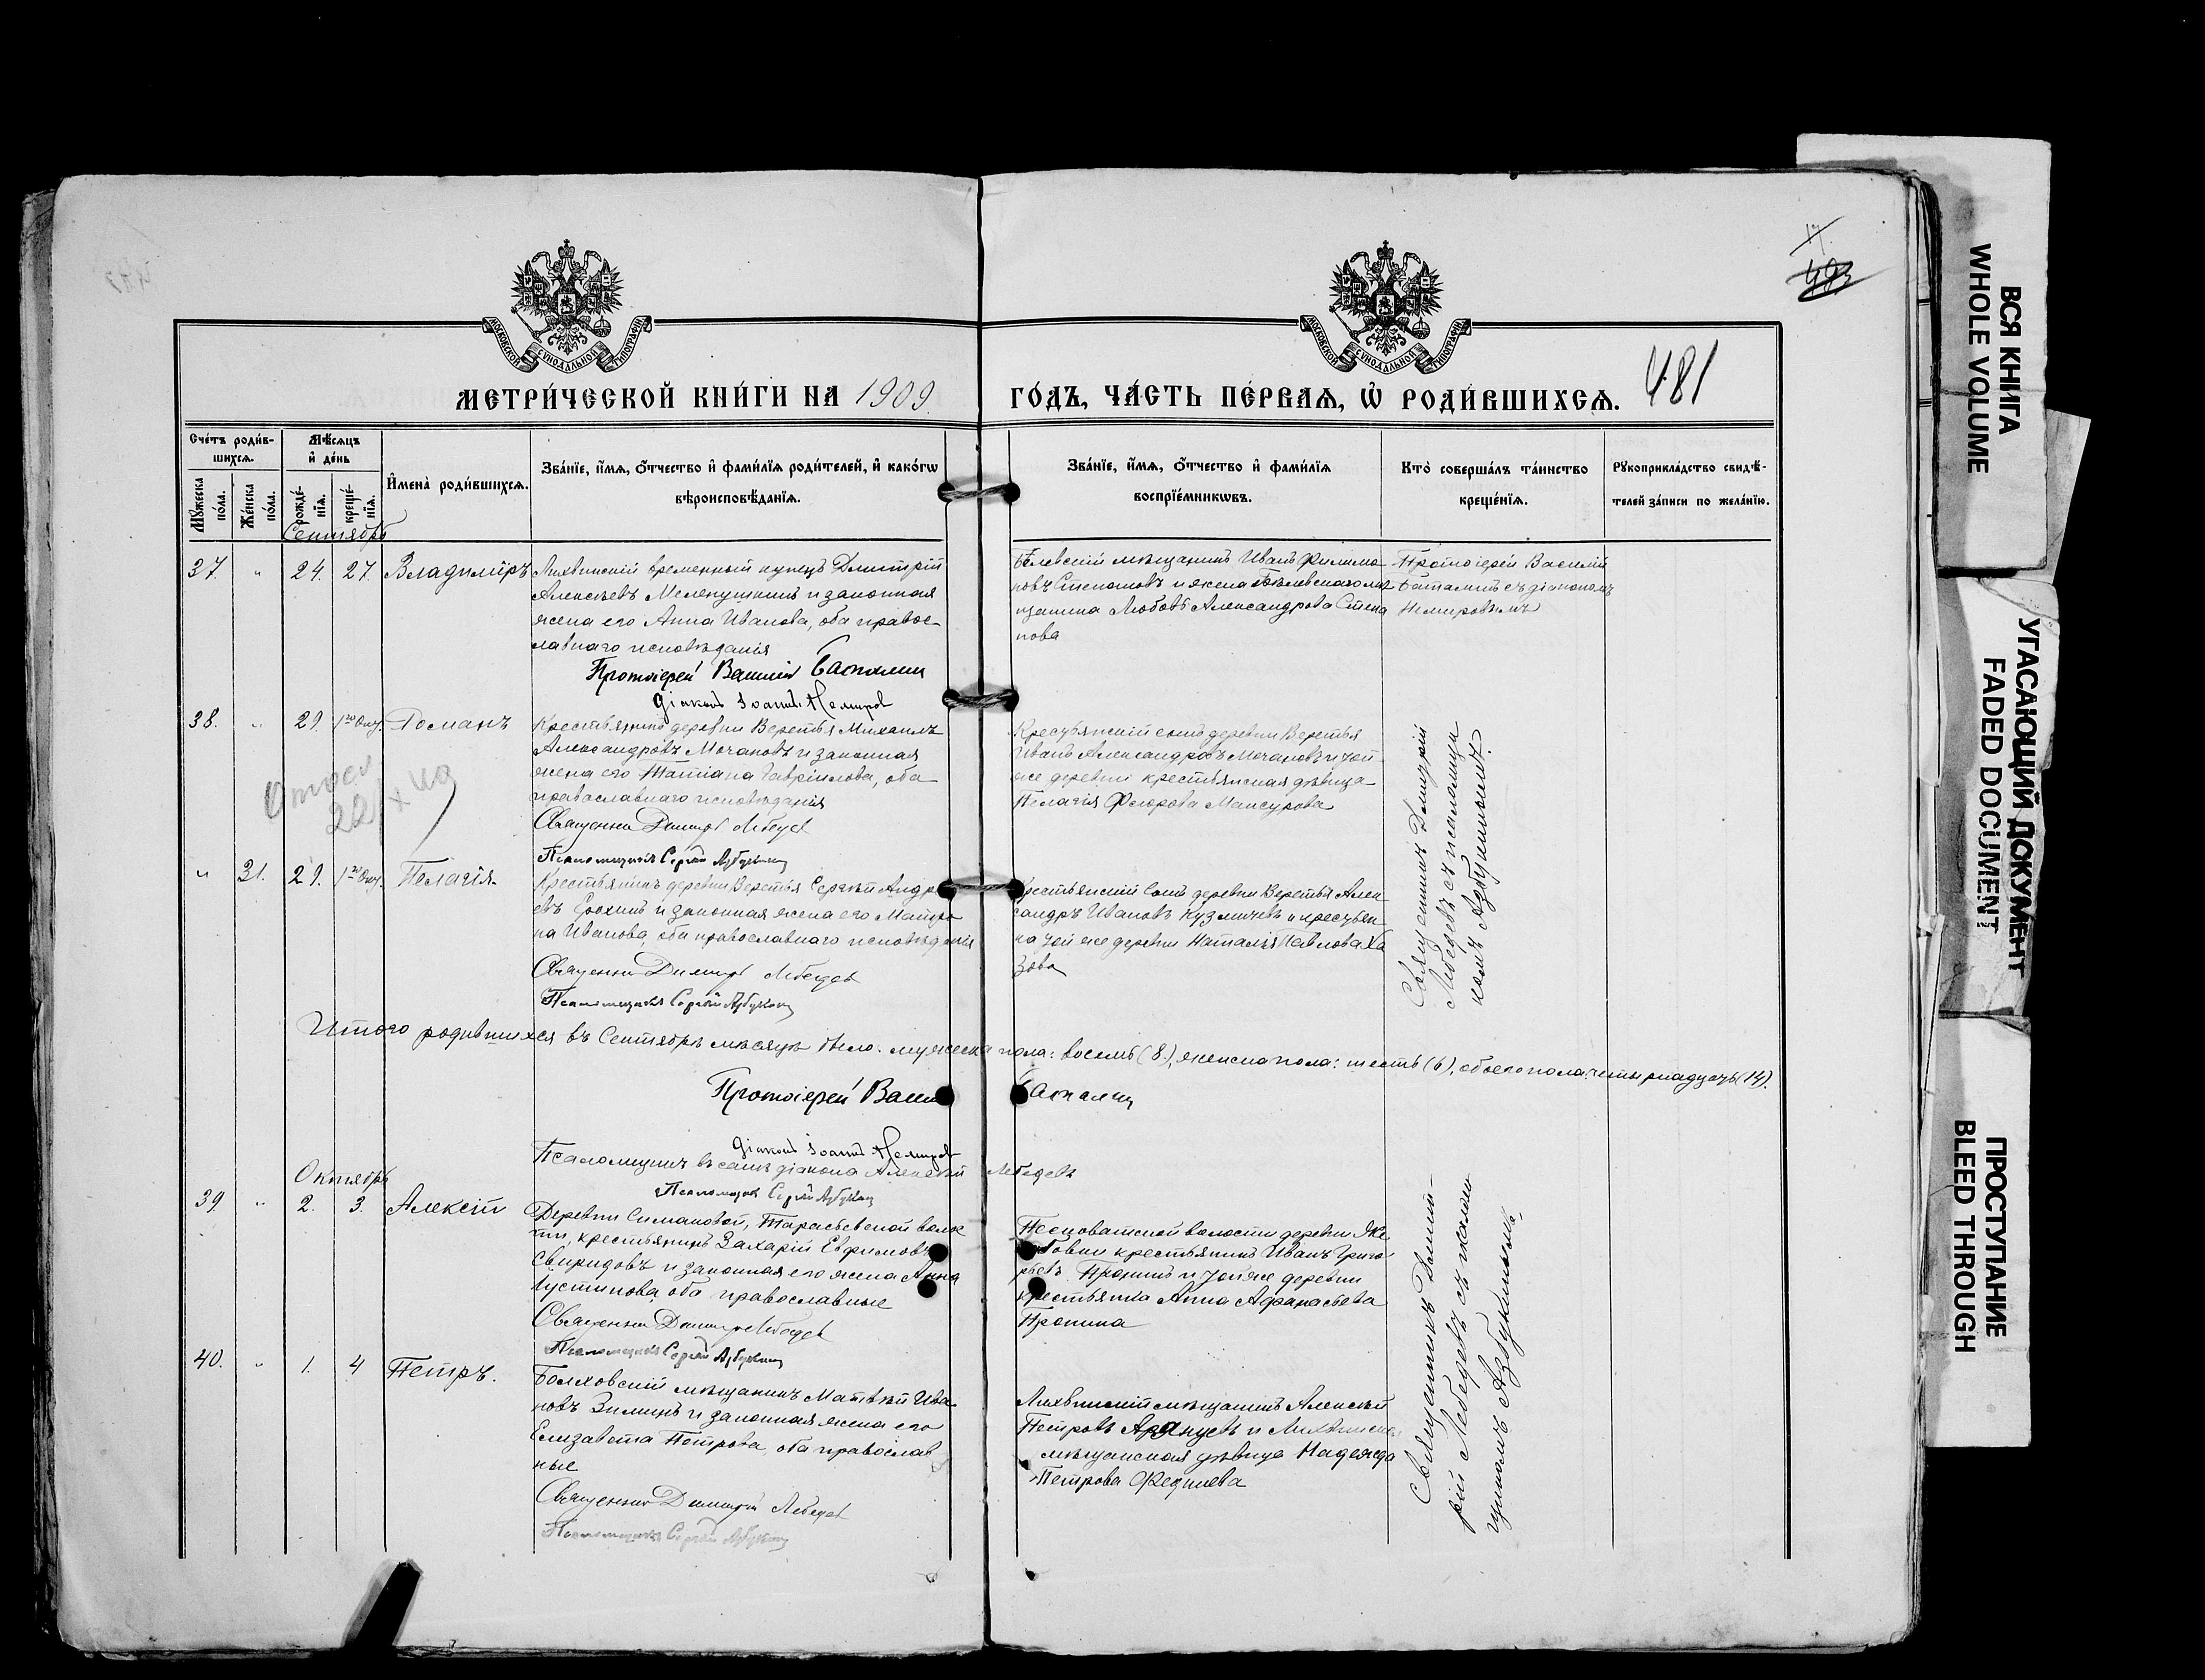 МОСКОВСКОЙ СѴНОДАЛЬНОЙ ТИПОГРАФІИ
МОСКОВСКОЙ СѴНОДАЛЬНОЙ ТИПОГРАФІИ
МЕТРИ́ЧЕСКОЙ КНИ́ГИ НА 1909
ГО́ДЪ, ЧА́СТЬ ПЕ́РВАѦ, Ѿ РОДИ́ВШИХСѦ.
481
Сче́тъ роди́в-
шихсѧ.
Мѣ́сѧцъ
и҆ де́нь
Мꙋ́жеска по́ла.
Же́нска по́ла.
рожде́-нїѧ.
креще́-нїѧ.
И҆мена̀ роди́вшихсѧ.
Зва́нїе, и҆́мѧ, ѻ҆́тчество и҆ фами́лїѧ роди́телей, и҆ како́гѡ
вѣроисповѣ́данїѧ.
Зва́нїе, и҆́мѧ, ѻ҆́тчество и҆ фами́лїѧ
воспрїе́мникѡвъ.
Кто̀ соверша́лъ та́инство
креще́нїѧ.
Рꙋкоприкла́дство свидѣ́-
телей за́писи по жела́нїю.
Сентябрь
37. " 24. 27. Владиміръ
Лихвинскій временный купецъ Димитрій
Алексѣевъ Мелепушкинъ и законная
жена его Анна Иванова, оба правос-
лавнаго исповѣданія
Протоіерей Василій Баталин
Діаконъ Іоаннъ Немиров
Бѣлевскій мѣщанинъ Иванъ Филимо
новъ Степановъ и жена Бѣлевскаго мѣ
щанина Любовь Александрова Степа
нова
Протоіерей Василій
Баталинъ съ діакономъ
Немировымъ
38. " 29. 1го Окт. Романъ
Крестьянинъ деревни Веретья Михаилъ
Александровъ Мочановъ и законная
жена его Татіана Гавріилова, оба
православнаго исповѣданія
Священникъ Димитр Лебедев
Псаломщикъ Сергій Азбукин
Крестьянскій сынъ деревни Веретья
Иванъ Александровъ Мочановъ и той
же деревни крестьянская дѣвица
Пелагія Федорова Мансурова
" 31. 29. 1го Окт. Пелагія
Крестьянинъ деревни Веретья Сергѣй Андре
евъ Ерохинъ и законная жена его Матро
на Иванова, оба православнаго исповѣданія
Священникъ Димитр Лебедев
Псаломщикъ Сергій Азбукин
Крестьянскій сынъ деревни Веретья Алек
сандръ Ивановъ Кузмичевъ и крестьян
ка той же деревни Наталья Павлова Ха
зова
Священникъ Димитрій
Лебедевъ съ псаломщи
комъ Азбукинымъ.
Итого родившихся въ Сентябрѣ мѣсяцѣ было: мужеска пола: восемь (8), женска пола: шесть (6), обоего пола: четырнадцать (14).
Протоіерей Васи Баталин
Діаконъ Іоаннъ Немиров
Псаломщикъ въ санѣ діакона Алексѣй Лебедевъ
Псаломщикъ Сергій Азбукин
Октябрь
39 " 2. 3. Алексій
Деревни Симановой, Тарасьевской волос
ти, крестьянинъ Захарій Евфимовъ
Свиридовъ и законная его жена Анна
Іустинова, оба православные
Священникъ Димитр Лебедев
Псаломщикъ Сергій Азбукин
волости деревни
крестьянинъ Иванъ Григо
рьевъ Пронинъ и той же деревни
крестьянка Анна Афанасьева
Пронина
40. " 1. 4 Петръ.
Болховскій мѣщанинъ Матвѣй Ива
новъ Зиминъ и законная жена его
Елизавета Петрова, оба православ
ные
Священникъ Димитрій Лебедев
Псаломщикъ Сергій Азбукин
Лихвинскій мѣщанинъ Алексѣй
Петровъ и Лихвинска
мѣщанская дѣвица Надежда
Петрова
Священникъ Димит-
рій Лебедевъ съ псалом
щикомъ Азбукинымъ.
ВСЯ КНИГА
WHOLE VOLUME
УГАСАЮЩИЙ ДОКУМЕНТ
FADED DOCUMENT
ПРОСТУПАНИЕ
BLEED THROUGH